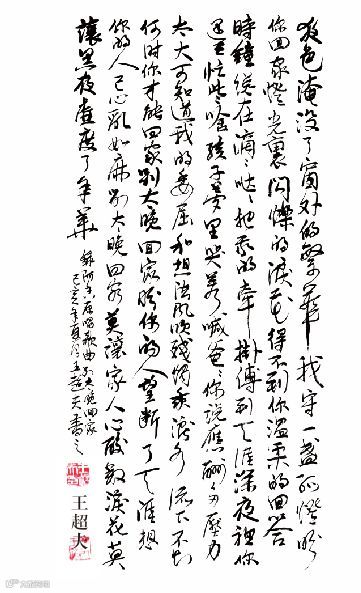 夜色淹没了窗外的繁华我守一盏孤灯盼
你回家灯光里闪烁的泪花得不到你温柔的回答
时钟总在滴滴哒哒把我的牵挂传到天涯深夜里你
还在忙些啥孩子梦里哭着喊爸你说应酬压力
太大可知道我的委屈和担
何时你才能回家别太晚回家盼你的人望断了天涯想
你的人已心乱如麻别太晚回家莫让家人心酸泪花莫
让黑夜虚度了年华
原唱歌曲别太晚回家
己亥年夏月王超夫书之
王超夫